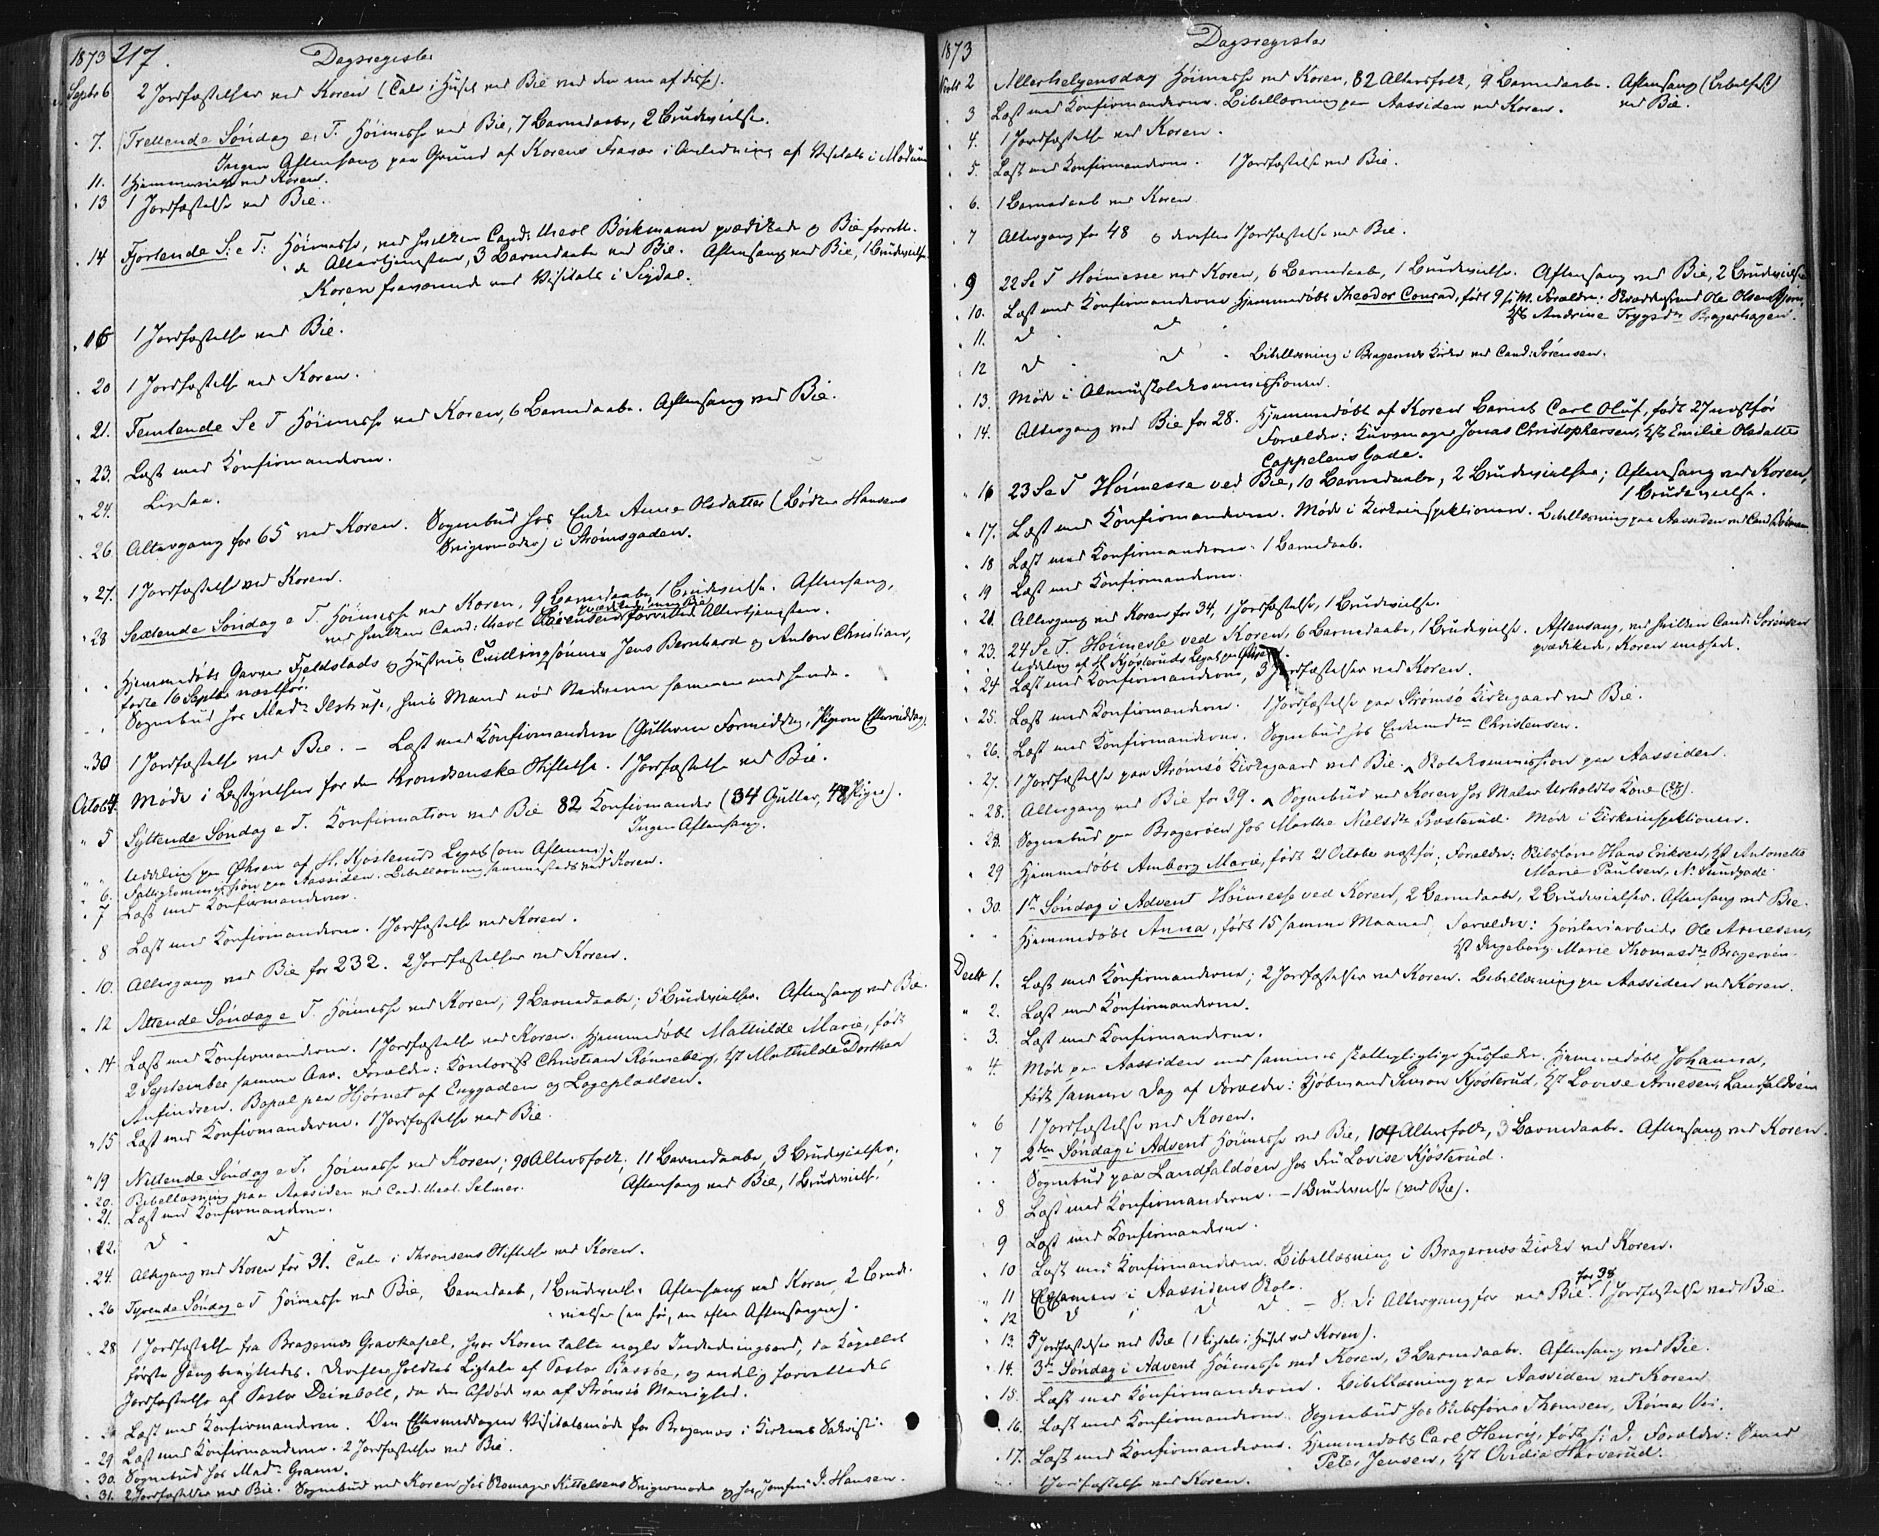 1873 217. Dagsregister
Septbr 6 2 Jordfæstelser ved Koren (Tale i Huset ved Bie ved den ene af disse).
" 7. Trettende Søndag e. T. Høimesse ved Bie, 7 Barnedaabe, 2 Brudevielser.
Ingen Aftensang paa Grund af Korens Fravær i Anledning af Visitats i Modum
11. 1 Hjemmevielse ved Koren.
" 13 1 Jordfæstelse ved Bie.
" 14 Fjortende S. e. T. Høimesse, ved hvilken Cand. theol. Böckmann prædikede og Bie forrette-
de Altertjenesten, 3 Barnedaabe ved Bie. Aftensang ved Bie, 1 Brudevielse.
Koren fraværende ved Visitats i Sigdal.
" 16 1 Jordfæstelse ved Bie.
" 20 1 Jordfæstelse ved Koren.
" 21. Femtende S e T Høimesse ved Koren, 6 Barnedaabe. Aftensang ved Bie.
" 23. Læst med Konfirmanderne.
" 24. Ligesaa.
" 26 Altergang for 65 ved Koren. Sognebud hos Enke Anne Olsdatter (Bødker Hansens
Svigermoder) i Strømsgaden.
" 27. 1 Jordfæstelse ved Koren.
" 28 Sextende Søndag e T. Høimesse ved Koren, 9 Barnedaabe, 1 Brudevielse. Aftensang,
ved hvilken Cand. theol. Sørensen prædikede, men Bie forrettede Altertjenesten.
" " Hjemmedøbt Garver Fjeldstads og Hustrus Tvillingsønner Jens Bernhard og Anton Christian,
fødte 16 Septbr næstfør.
" " Sognebud hos Madm Ilstrup, hvis Mand nød Nadveren sammen med hende.
" 30 1 Jordfæstelse ved Bie. – Læst med Konfirmanderne (Gutterne Formiddag, Pigerne Eftermiddag).
Octob 4. Møde i Bestyrelsen for den Kronsenske Stiftelse. 1 Jordfæstelse ved Bie.
" 5 Syttende Søndag e T. Konfirmation ved Bie 82 Konfirmander (34 Gutter, 48 Piger).
Ingen Aftensang.
" " Uddeling paa Øhren af H. Kjøsteruds Legat (om Aftenen).
" 6. Fattigkommission paa Aassiden. Bibellæsning sammesteds ved Koren.
" 7 Læst med Konfirmanderne.
" 8 Læst med Konfirmanderne. 1 Jordfæstelse ved Koren.
" 10. Altergang ved Bie for 232. 2 Jordfæstelser ved Koren.
" 12 Attende Søndag e T. Høimesse ved Koren; 9 Barnedaabe; 5 Brudevielser. Aftensang ved Bie.
" 14 Læst med Konfirmanderne. 1 Jordfæstelse ved Koren. Hjemmedøbt Mathilde Marie, født
2 September samme Aar. Forældre: Kontorist Christian Rønneberg, Hst Mathilde Dorthea
Anfindsen. Bopæl paa Hjørnet af Enggaden og Løgepladsen.
" 15 Læst med Konfirmanderne. 1 Jordfæstelse ved Bie.
" 19 Nittende Søndag e T. Høimesse ved Koren; 90 Altersfolk; 11 Barnedaabe, 3 Brudevielser.
Aftensang ved Bie, 1 Brudevielse.
" 20. Bibellæsning paa Aassiden ved Cand. theol. Selmer.
" 21. Læst med Konfirmanderne.
" 22. D D
" 24. Altergang ved Koren for 31. Tale i Kronsens Stiftelse ved Koren.
" 26 Tyvende Søndag e T Høimesse ved Bie, Barnedaab, 1 Brudevielse. Aftensang ved Koren, 2 Brude-
vielser (en før, en efter Aftensangen).
" 28 1 Jordfæstelse fra Bragernes Gravkapel, hvor Koren talte nogle Indledningsord, da Kapellet
første Gang benyttedes. Derefter holdtes Ligtale af Pastor Bassøe, og endelig forrettedes
Jordfæstelse af Pastor Deinboll, da den Afdøde var af Strømsø Menighed.
Læst med Konfirmanderne. Om Eftermiddagen Visitatsmøde for Bragernes i Kirkens Sakristi.
" 29 Læst med Konfirmanderne. 2 Jordfæstelser ved Bie.
" 30. Sognebud hos Madm Gram.
" 31. 2 Jordfæstelser ved Bie. Sognebud ved Koren hos Skomager Kittelsens Svigermoder og hos Jomfru J. Hansen.
1873 Dagsregister
Novbr 2 Allerhelgensdag Høimesse ved Koren, 82 Altersfolk, 9 Barnedaabe. Aftensang (Bibelfest)
ved Bie.
" 3 Læst med Konfirmanderne. Bibellæsning paa Aassiden ved Koren.
" 4. 1 Jordfæstelse ved Koren.
" 5. Læst med Konfirmanderne. 1 Jordfæstelse ved Bie.
" 6. 1 Barnedaab ved Koren
" 7 Altergang for 48 og derefter 1 Jordfæstelse ved Bie.
" 9 22 S e T Høimesse ved Koren, 6 Barnedaabe, 1 Brudevielse. Aftensang ved Bie, 2 Brudevielser
" 10. Læst med Konfirmanderne. Hjemmedøbt Theodor Conrad, født 9 s. M. Forældre: Ole Olsen Bjørn,
Hst Andrine Trygsdr Bragerhagen.
" 11. D D
" 12 D D Bibellæsning i Bragernes Kirke ved Cand. Sørensen.
" 13. Møde i Almueskolekommissionen.
" 14. Altergang ved Bie for 28. Hjemmedøbt af Koren Barnet Carl Oluf, født 27 næstfør
Forældre: Kurvmager Jonas Christophersen, Hst Emilie Olsdatter
Cappelens Gade.
" 16 23 S e T Høimesse ved Bie, 10 Barnedaabe, 2 Brudevielser; Aftensang ved Koren,
1 Brudevielse.
" 17. Læst med Konfirmanderne. Møde i Kirkeinspektionen. Bibellæsning paa Aassiden ved Cand.
" 18 Læst med Konfirmanderne. 1 Barnedaab.
" 19 Læst med Konfirmanderne.
" 21 Altergang ved Koren for 34, 1 Jordfæstelse, 1 Brudevielse.
" 23. 24 S e T. Høimesse ved Koren, 6 Barnedaabe, 1 Brudevielse. Aftensang, ved hvilken Cand. Sørensen
prædikede, Koren messede.
Uddeling af H. Kjøsteruds Legat paa Øhren.
" 24 Læst med Konfirmanderne, 3 Jordfæstelser ved Koren.
" 25. Læst med Konfirmanderne. 1 Jordfæstelse paa Strømsø Kirkegaard ved Bie.
" 26. Læst med Konfirmanderne. Sognebud hos Enkemdm Christensen.
" 27. 1 Jordfæstelse paa Strømsø Kirkegaard ved Bie. Skolekommission paa Aassiden.
" 28. Altergang ved Bie for 39. Sognebud ved Koren hos Maler Urholdts Kone
" 29. Sognebud paa Bragerøen hos Marthe Nielsdtr Prøsterud. Møde i Kirkeinspektionen.
" 29 Hjemmedøbt Amborg Marie, født 21 Octobr næstfør; Forældre: Skibsfører Hans Eriksen, Hst Antonette
Marie Paulsen, N. Sundgade.
" 30. 1ste Søndag i Advent Høimesse ved Koren, 2 Barnedaabe, 2 Brudevielser. Aftensang ved Bie.
" " Hjemmedøbt Anna, født 15 samme Maaned, Forældre: Høvleriarbeider Ole Arnesen,
Hst Ingeborg Marie Thomasdr Bragerøen.
Decbr 1. Læst med Konfirmanderne; 2 Jordfæstelser ved Koren. Bibellæsning paa Aassiden ved Koren.
" 2. Læst med Konfirmanderne.
" 3. Læst med Konfirmanderne.
" 4. Møde paa Aassiden med sammes skattepligtige Husfædre. Hjemmedøbt Johanna,
født samme Dag af Forældre: Kjøbmand Simon Kjøsterud, Hst Lovise Arnesen, Landfaldøen
" 6 1 Jordfæstelse ved Koren.
" 7 2den Søndag i Advent Høimesse ved Bie, 104 Altersfolk, 3 Barnedaabe. Aftensang ved Koren.
" " Sognebud paa Landfaldøen hos Fru Lovise Kjøsterud.
" 8 Læst med Konfirmanderne. – 1 Brudevielse (ved Bie).
" 9 Læst med Konfirmanderne.
" 10 Læst med Konfirmanderne. Bibellæsning i Bragernes Kirke ved Koren.
" 11 Examen i Aassidens Skole.
" 12 D i D D – S. D. Altergang for 38 ved Bie. 1 Jordfæstelse ved Bie.
" 13. 5 Jordfæstelser ved Bie (1 Ligtale i Huset ved Koren).
" 14. 3die Søndag i Advent Høimesse ved Koren, 3 Barnedaabe. Aftensang ved Bie.
" 15. Læst med Konfirmanderne. Bibellæsning paa Aassiden ved Koren
" 16. Læst med Konfirmanderne Sognebud hos Skibsfører Thomsen, Rømers Vei.
" 17. Læst med Konfirmanderne. Hjemmedøbt Carl Henrij, født s. D. Forældre:
Peter Jensen, Hst Ovidia Harverud.
1 Jordfæstelse ved Koren.